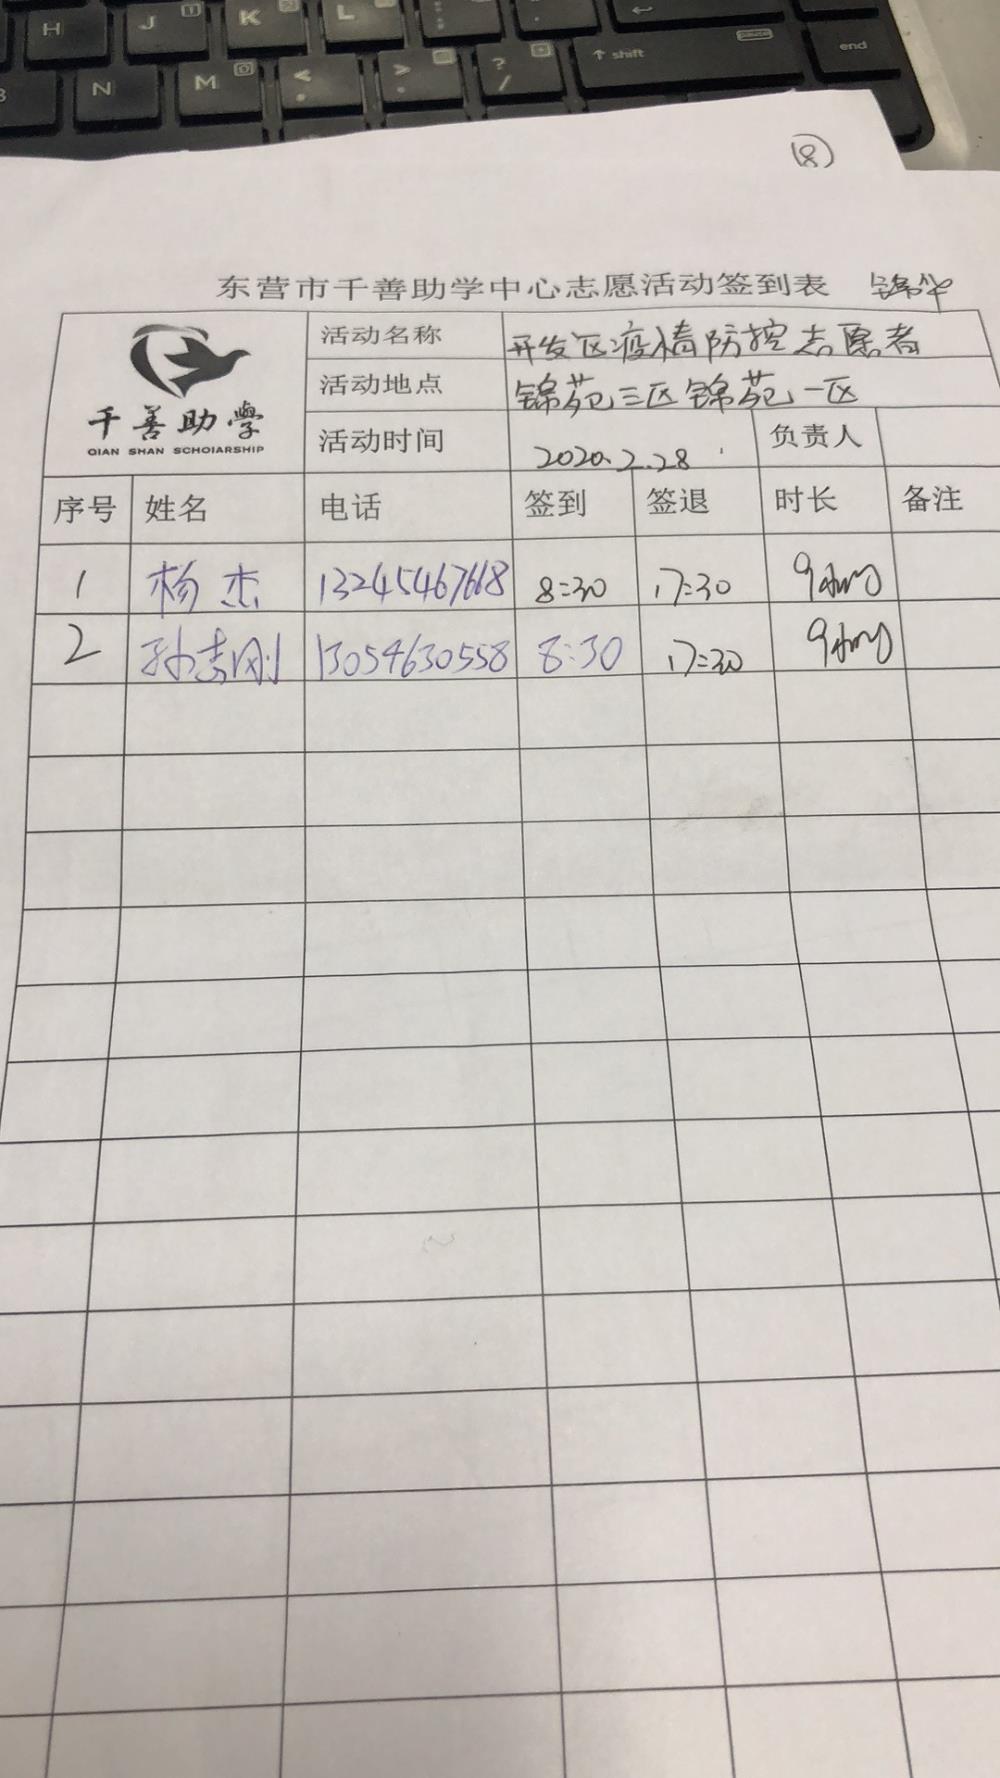 H J K L
shift pause end
N M < , > . ? /
⑱
东营市千善助学中心志愿活动签到表 锦华
千善助學
QIAN SHAN SCHOIARSHIP
活动名称 开发区疫情防控志愿者
活动地点 锦苑三区锦苑一区
活动时间 2020.2.28 负责人
序号 姓名 电话 签到 签退 时长 备注
1 杨杰 13245467668 8:30 17:30 9小时
2 孙志刚 13054630558 8:30 17:30 9小时